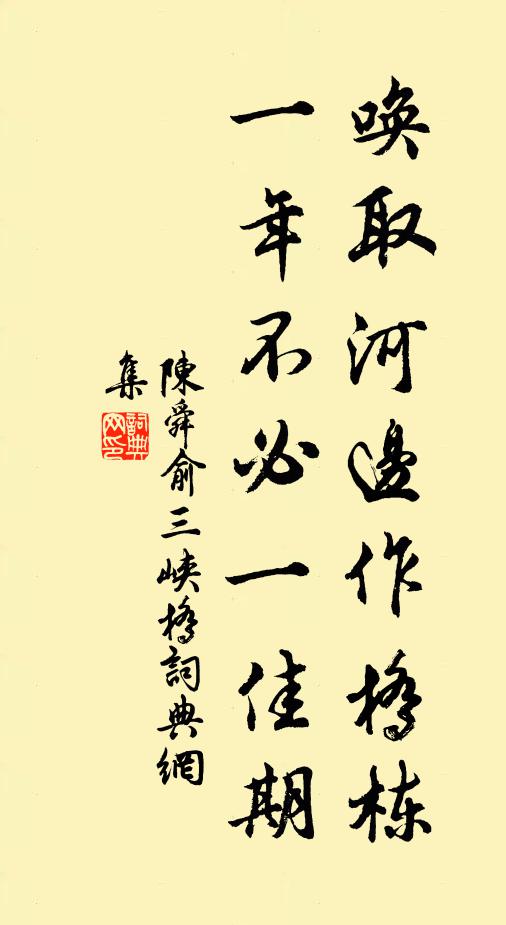 喚取河邊作橋棟
一年不必一佳期
陳舜俞三峽橋詞典網
集
詞典
网印